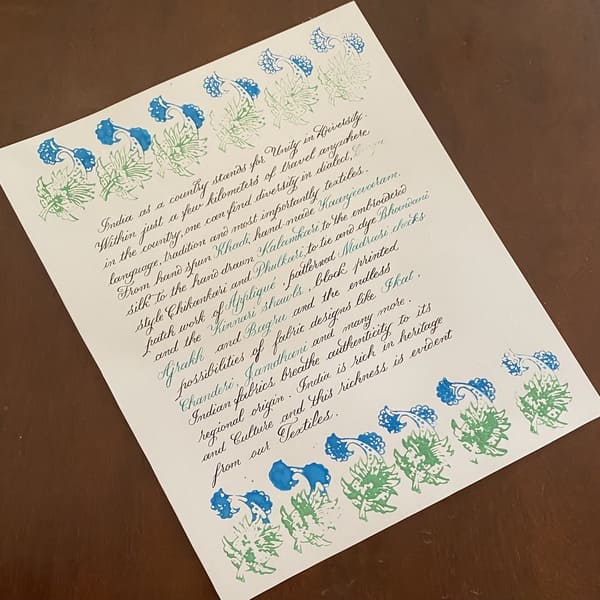 India as a country stands for Unity in Diversity.
Within just a few kilometers of travel anywhere
in the country, one can find diversity in dialect,
language, tradition and most importantly textiles.
From hand spun Khadi, hand made Kaanjeevaram
silk to the hand drawn Kalamkari to the embroidered
style Chikankari and Phulkari, to tie and dye Bhandani
patch work of Appliqué, patterned Madrasi checks
and the Kinnari shawls, block printed
Ajrakh and Bagru and the endless
possibilities of fabric designs like Ikat,
Chanderi, Jamdhani and many more.
Indian fabrics breathe authenticity to its
regional origin. India is rich in heritage
and Culture and this richness is evident
from our Textiles.